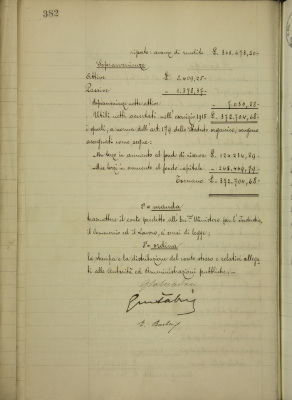 382
riporto: avanzo di rendite £. 365.673,20-
Sopravvenienze
Attive £ 2.409,25-
Passive
Sopravvenienze nette attive
Utili netti accertati nell'esercizio 1915 £. 372.704,68-
i quali, a norma dell'art. 179 dello Statuto organico, vengono
assegnati come segue:
Un terzo in aumento al fondo di riserva £. 124.234,89-
Due terzi in aumento al fondo capitale " 248.469,79-
Tornano £. 372.704,68-
1° = manda
trasmettere il conto predetto alla S. E. Ministero per l'Industria,
il Commercio ed il Lavoro, a' sensi di legge;
2° = ordina
la stampa e la distribuzione del conto stesso e relativi allega
ti alle Autorità ed Amministrazioni pubbliche.